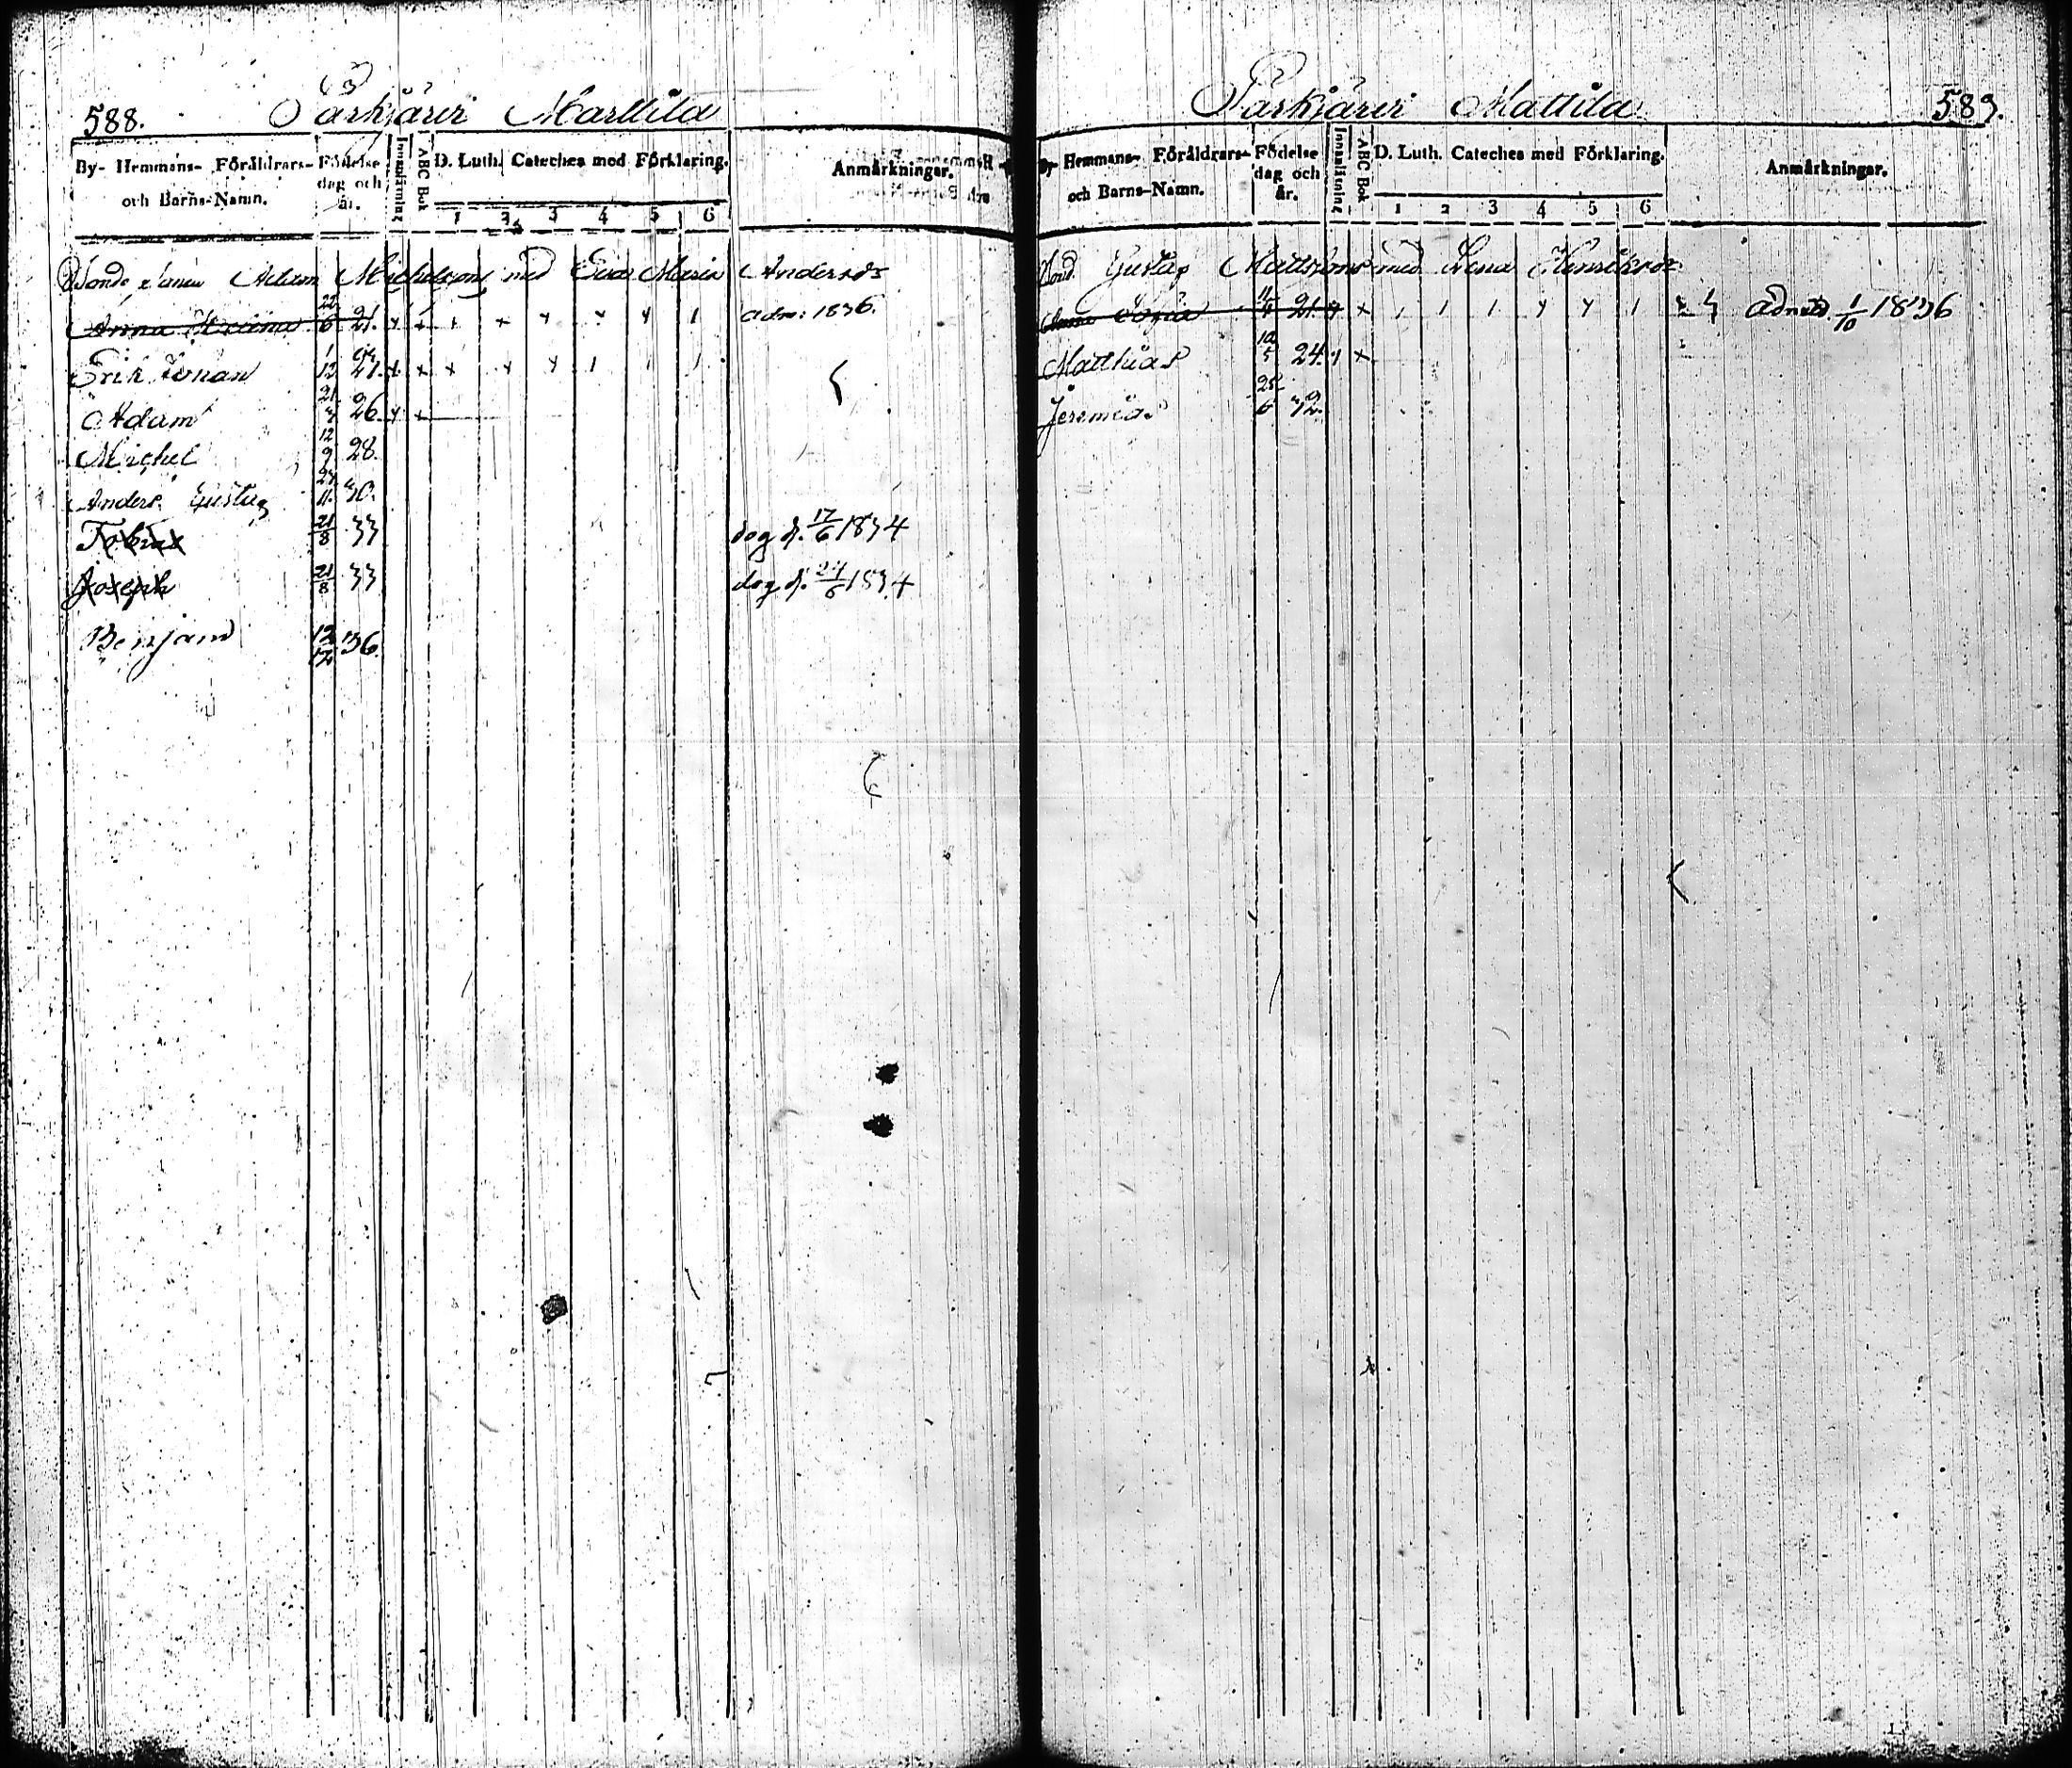 588. Pärkjäreri Marttila
By- Hemmans- Föräldrars- och Barns-Namn. Födelse dag och år. Innanläsning ABC Bok D. Luth. Cateches med Förklaring. Anmärkningar.
1 2 3 4 5 6
Adam Michelson med Eva Maria Andersdr
Anna 22/6 21. x x 1 x y y y 1 adm: 1836.
Erik Johan 1/12 x x x y y 1 1 1
Adam 26. x x
Michel 12/9 28.
Anders Gustaf 30.
Tobias 21/8 33 dog d. 17/6 1834
Joseph 21/8 33 dog d. 24/6 1834
Benjam 12/12 36.
Pärkjäreri Mattila 589.
By- Hemmans- Föräldrars- och Barns-Namn. Födelse dag och år. Innanläsning ABC Bok D. Luth. Cateches med Förklaring. Anmärkningar.
1 2 3 4 5 6
Bond. Gustaf Mattsson med Lena Henriksdr
Sofia 21. y x 1 1 1 y y 1 adm d. 1/10 1836
Matthias 10/5 24. y x
Jeremias 25/6 32.